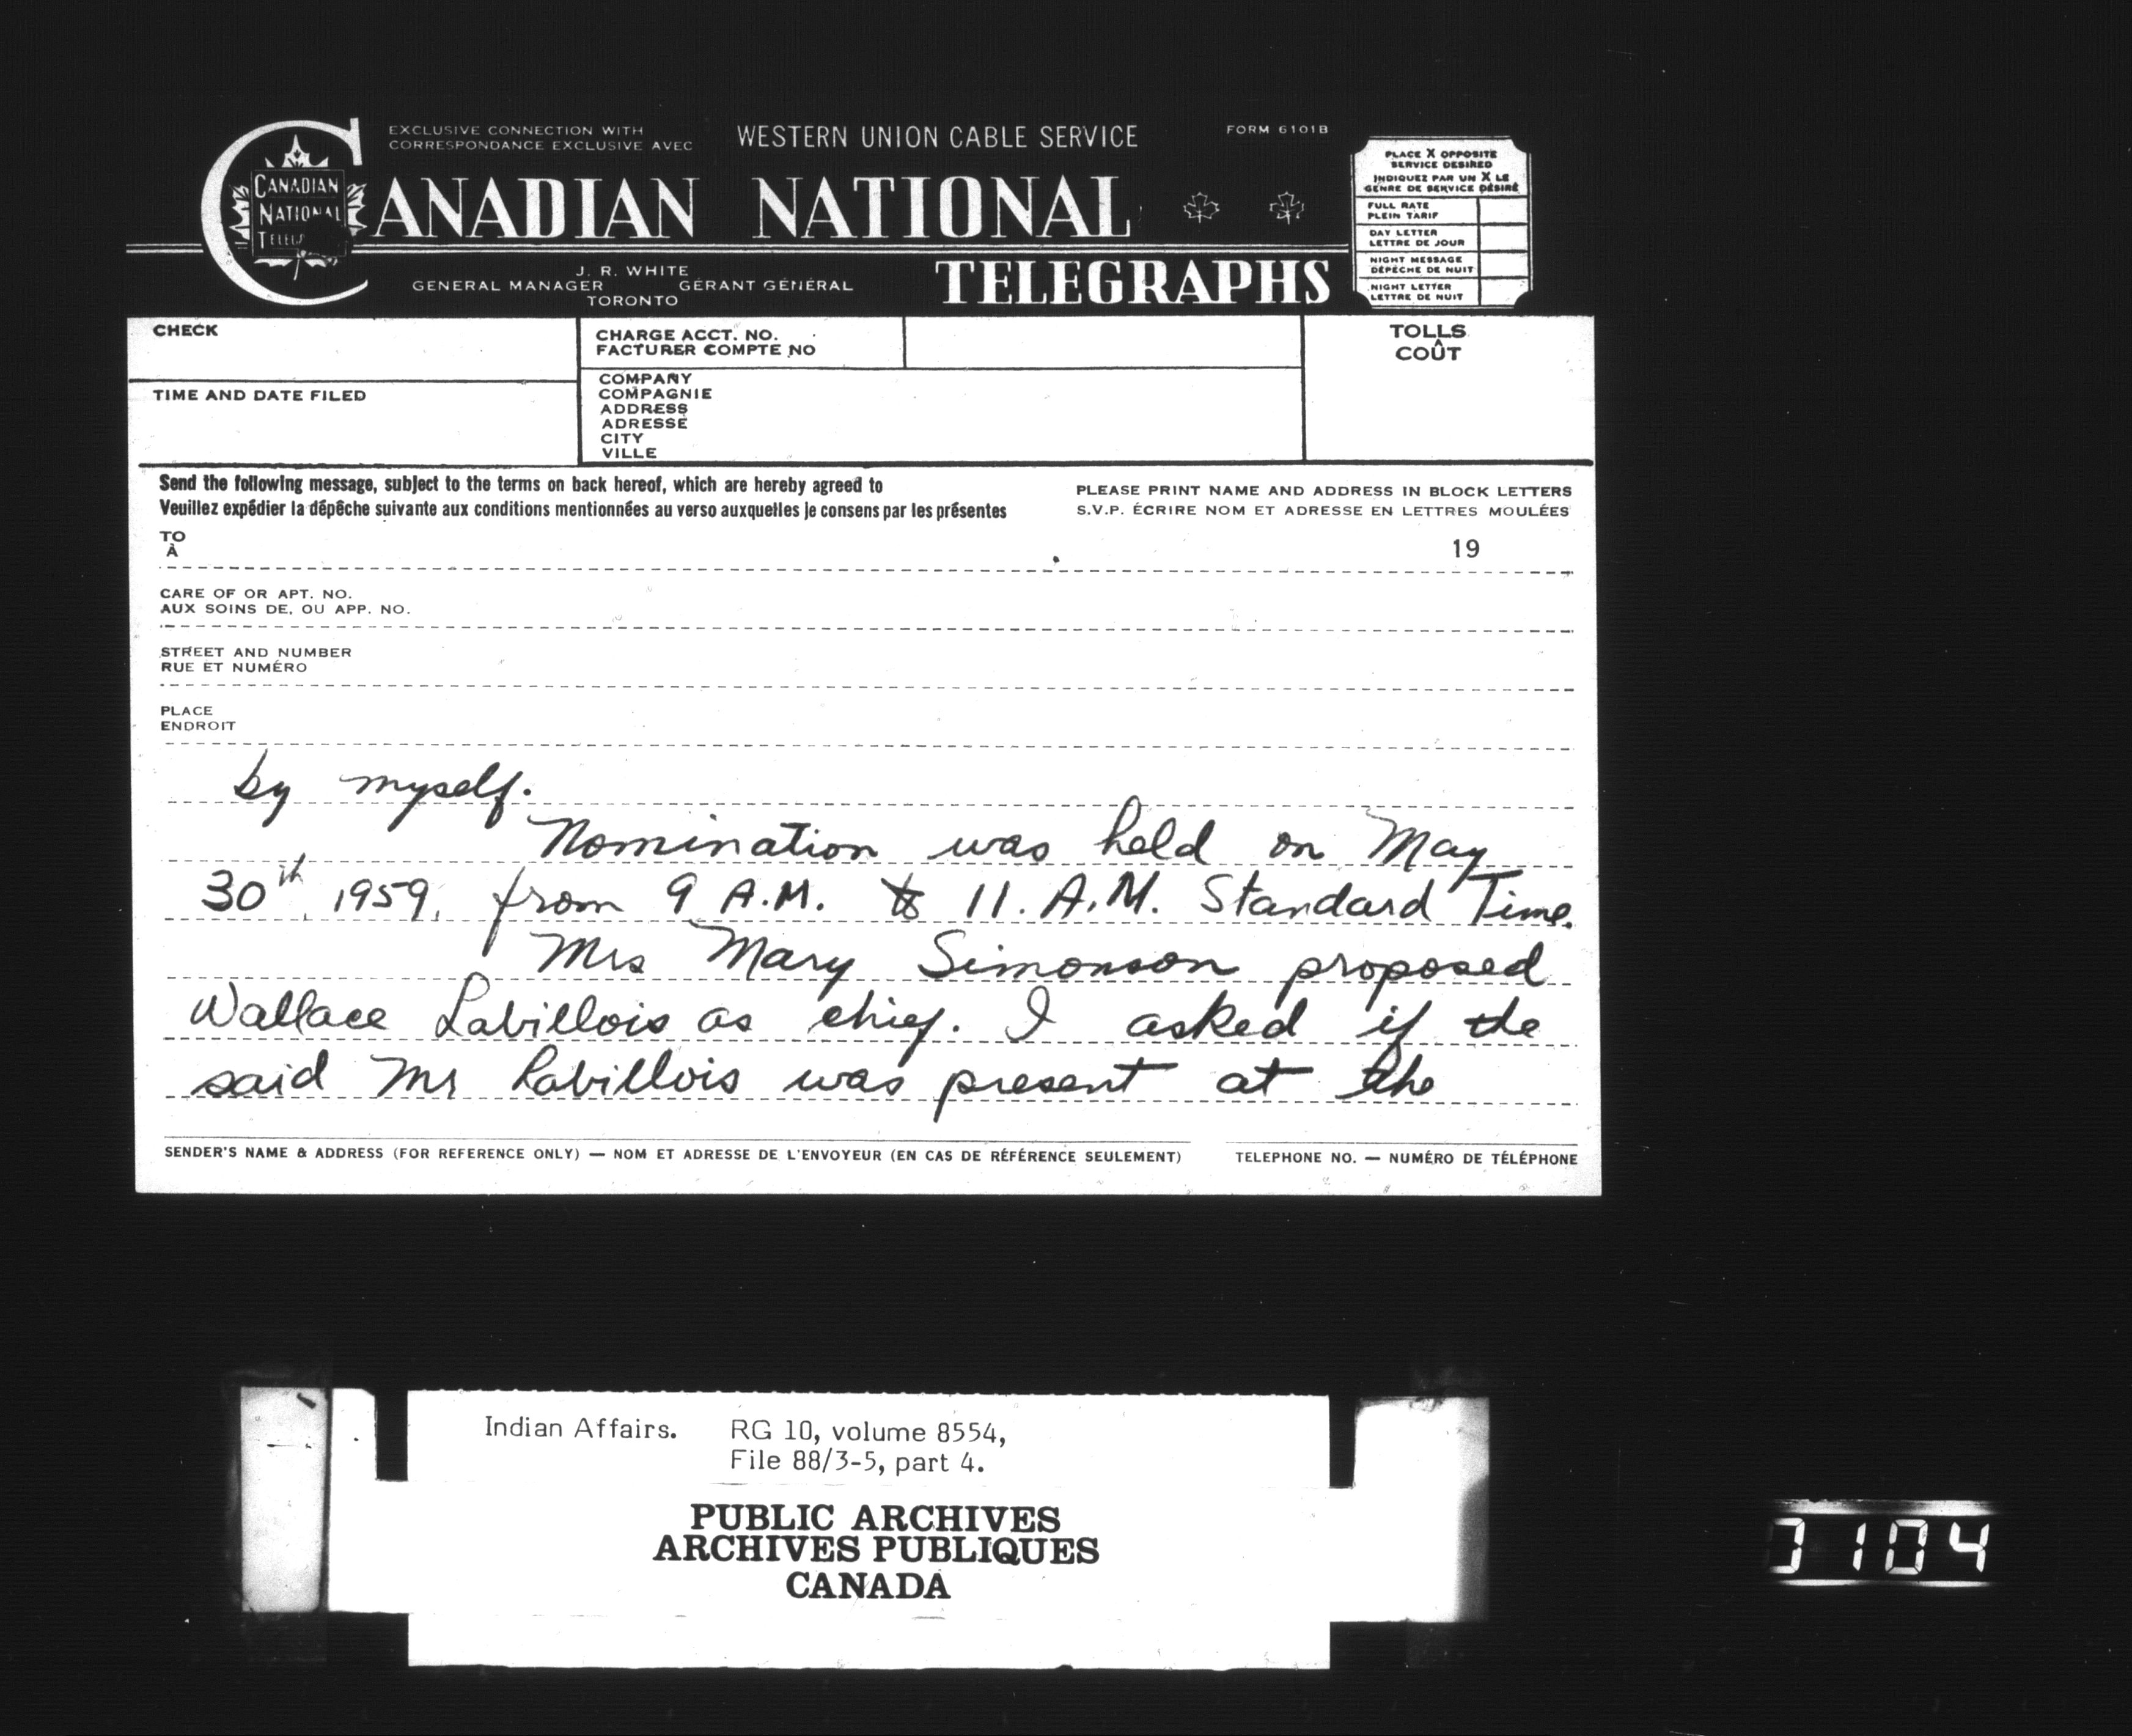 EXCLUSIVE CONNECTION WITH
CORRESPONDANCE EXCLUSIVE AVEC
WESTERN UNION CABLE SERVICE
FORM 6101B
CANADIAN NATIONAL
CANADIAN
NATIONAL
TELEGRAPHS
J. R. WHITE
GENERAL MANAGER GÉRANT GÉNÉRAL
TORONTO
PLACE X OPPOSITE
SERVICE DESIRED
INDIQUEZ PAR UN X LE
GENRE DE SERVICE DÉSIRÉ
FULL RATE
PLEIN TARIF
DAY LETTER
LETTRE DE JOUR
NIGHT MESSAGE
DÉPÊCHE DE NUIT
NIGHT LETTER
LETTRE DE NUIT
CHECK
CHARGE ACCT. NO.
FACTURER COMPTE NO
TOLLS
COÛT
TIME AND DATE FILED
COMPANY
COMPAGNIE
ADDRESS
ADRESSE
CITY
VILLE
Send the following message, subject to the terms on back hereof, which are hereby agreed to
Veuillez expédier la dépêche suivante aux conditions mentionnées au verso auxquelles je consens par les présentes
PLEASE PRINT NAME AND ADDRESS IN BLOCK LETTERS
S.V.P. ÉCRIRE NOM ET ADRESSE EN LETTRES MOULÉES
TO
À
19
CARE OF OR APT. NO.
AUX SOINS DE, OU APP. NO.
STREET AND NUMBER
RUE ET NUMÉRO
PLACE
ENDROIT
by myself.
Nomination was held on May
30th, 1959, from 9 A.M. to 11. A.M. Standard Time.
Mrs Mary Simonson proposed
Wallace Labillois as chief. I asked if the
said Mr Labillois was present at the
SENDER'S NAME & ADDRESS (FOR REFERENCE ONLY) — NOM ET ADRESSE DE L'ENVOYEUR (EN CAS DE RÉFÉRENCE SEULEMENT)
TELEPHONE NO. — NUMÉRO DE TÉLÉPHONE
Indian Affairs. RG 10, volume 8554,
File 88/3-5, part 4.
PUBLIC ARCHIVES
ARCHIVES PUBLIQUES
CANADA
0104